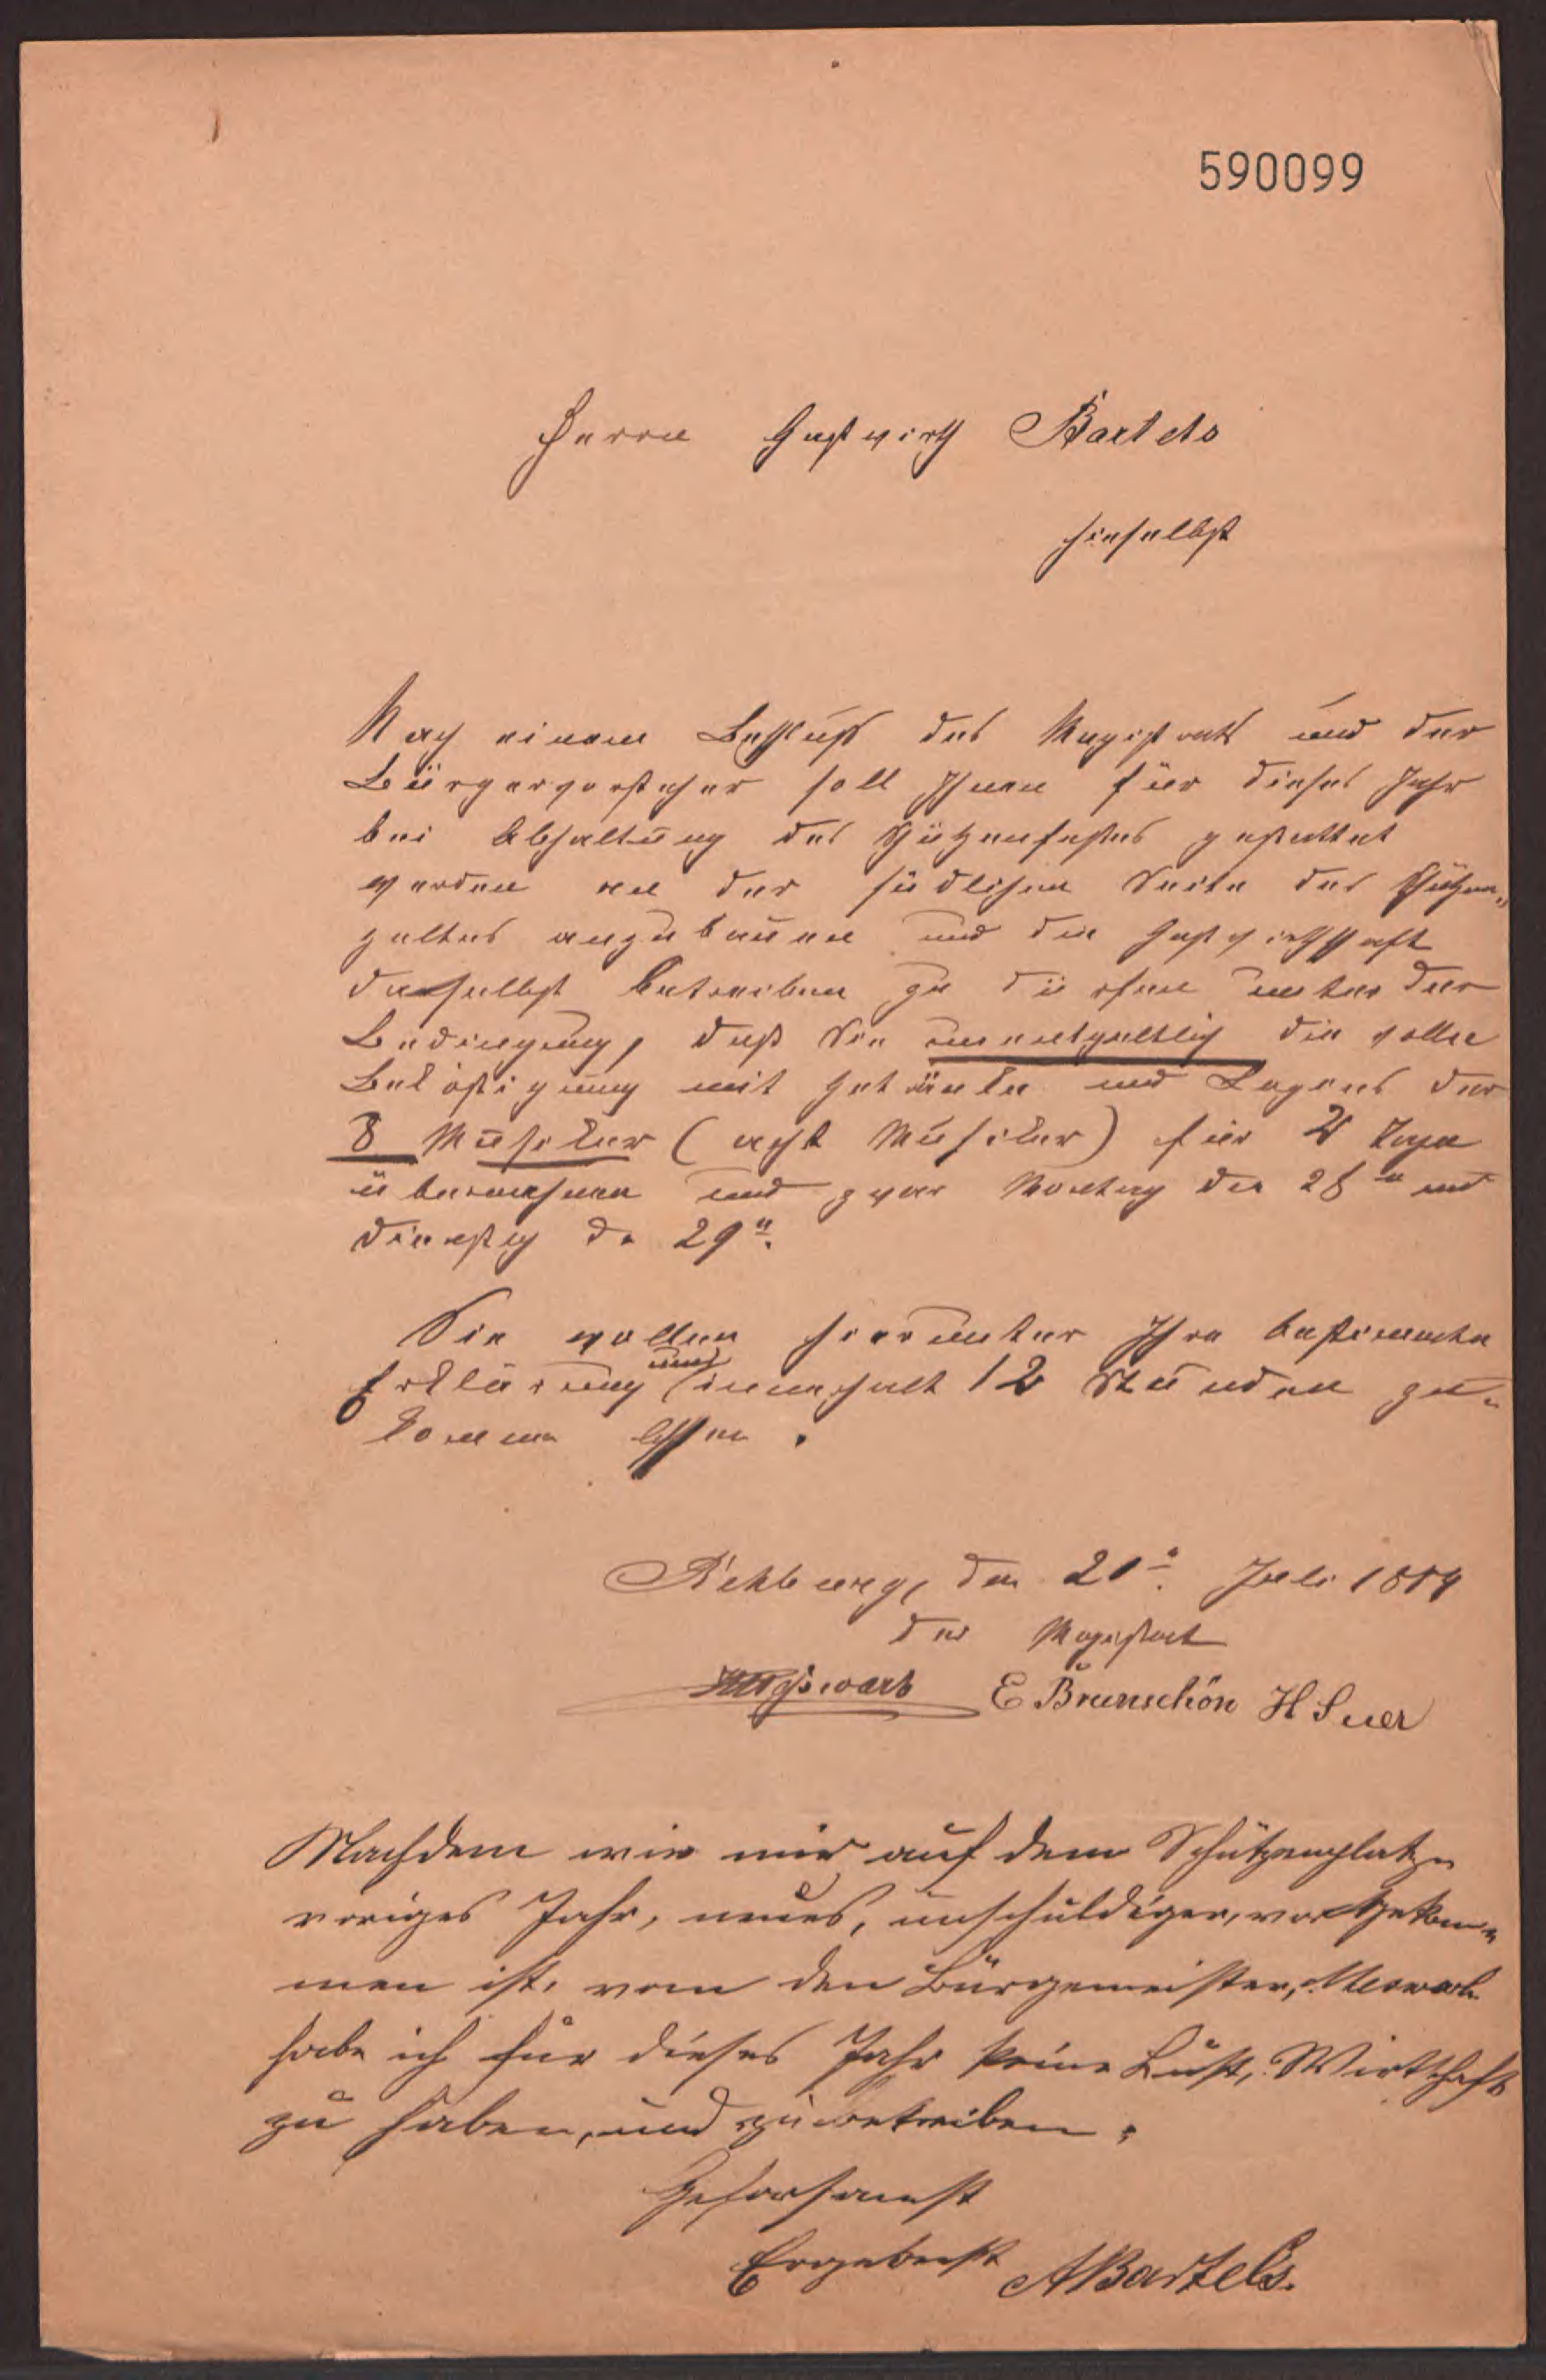 590099
Herrn Gastwirth Bartels
hieselbst
Nach einem Beschluß des Magistrats und der
Bürgervorsteher soll Ihnen für dieses Jahr
bei Abhaltung des Schützenfestes gestattet
werden an der südlichen Seite des Schützen-
zeltes anzubauen und die Gastwirthschaft
daselbst betreiben zu dürfen unter der
Bedingung, daß Sie unentgeltlich die volle
Beköstigung mit Getränke und Logens der
8 Musiker (acht Musiker) für 2 Tage
übernehmen und zwar Montag den 28n und
Dienstag d. 29n.
Sie wollen hierunter Ihre bestimmte
Erklärung uns innerhalb 12 Stunden zu-
kommen lassen.
Rehburg, den 21n. Juli 1884
Der Magistrat
E Brunschön H Suer
Nachdem wie mir auf dem Schützenplatze
voriges Jahr, unschuldiger, vorgekom-
men ist, vom den Bürgemeister, Meswarb
habe ich für dieses Jahr keine Lust, Wirtschaft
zu haben, und zu betreiben.
Gehorsamst
Ergebenst ABartels.